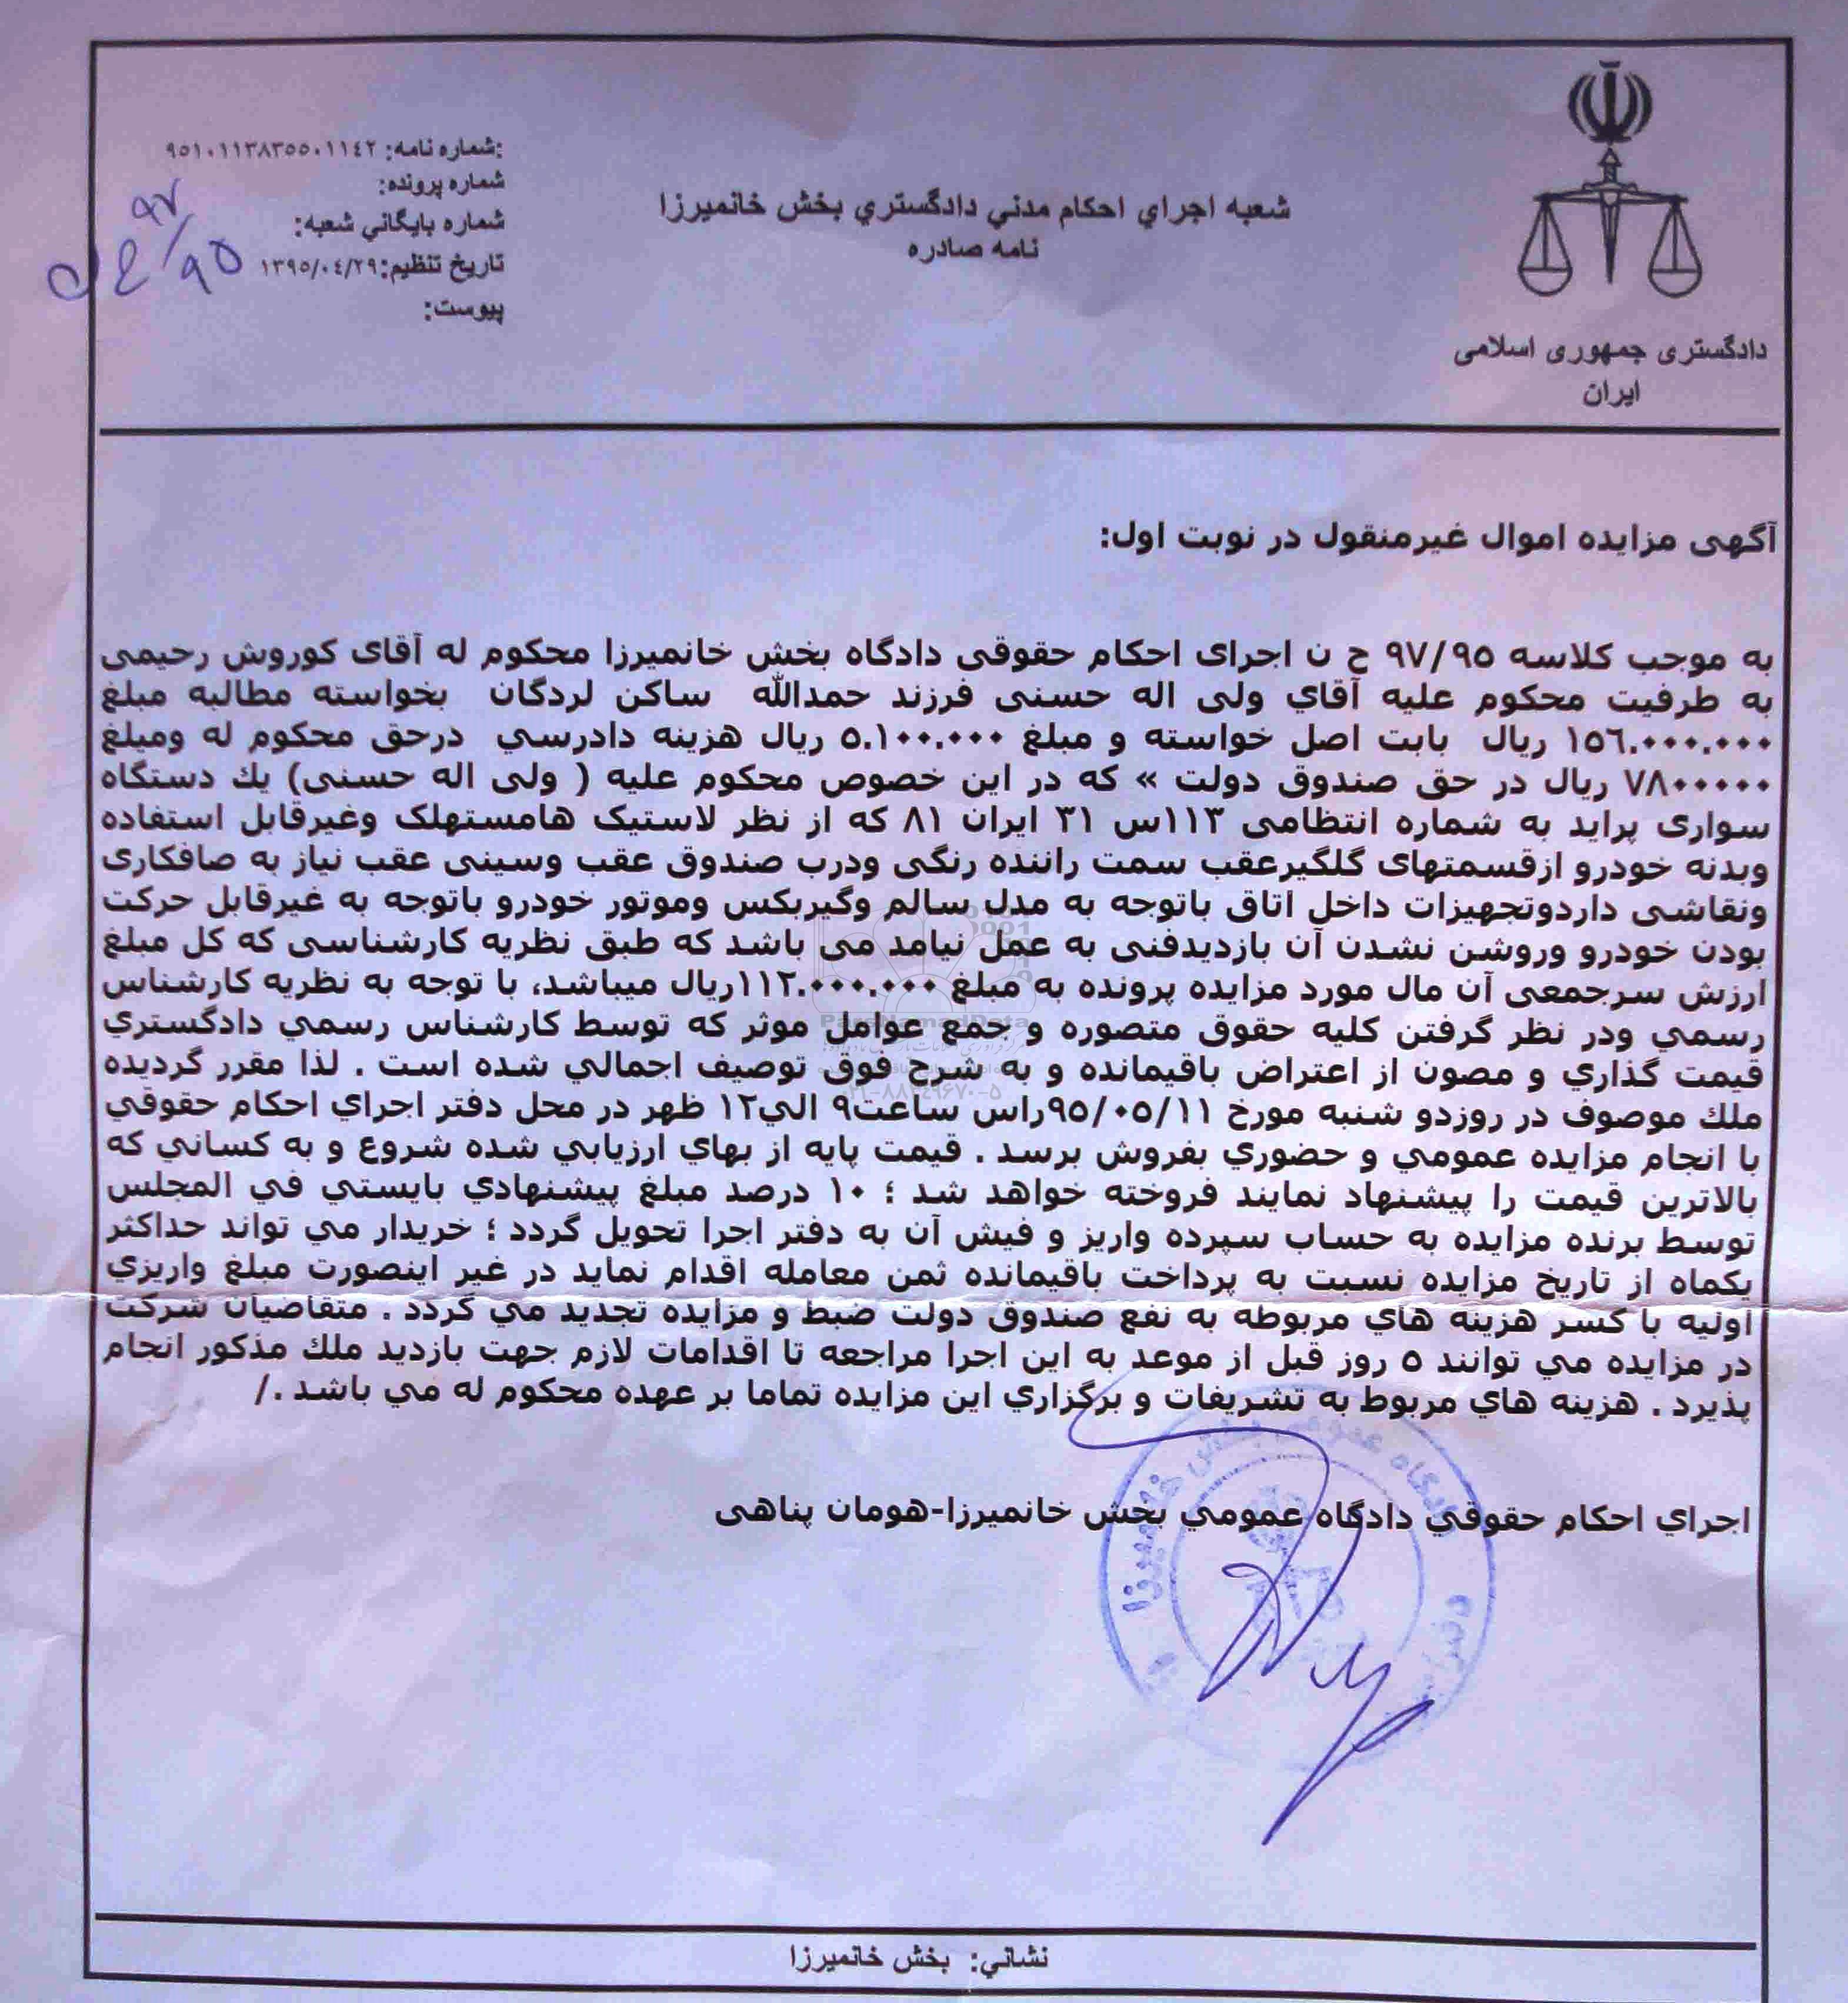 دادگستری جمهوری اسلامی
ایران
شعبه اجراي احکام مدني دادگستري بخش خانمیرزا
نامه صادره
:شماره نامه: ۹۵۱۰۱۱۳۸۳۵۵۰۱۱٤۲
شماره پرونده:
شماره بایگاني شعبه:
تاریخ تنظیم: ۱۳۹۵/۰٤/۲۹
پیوست:
۹۷/۹۵
آگهی مزایده اموال غیرمنقول در نوبت اول:
به موجب کلاسه ۹۷/۹۵ ح ن اجرای احکام حقوقی دادگاه بخش خانمیرزا محکوم له آقای کوروش رحیمی
به طرفیت محکوم علیه آقاي ولی اله حسنی فرزند حمدالله ساکن لردگان بخواسته مطالبه مبلغ
۱۵٦.۰۰۰.۰۰۰ ریال بابت اصل خواسته و مبلغ ۵.۱۰۰.۰۰۰ ریال هزینه دادرسي درحق محکوم له ومبلغ
۷۸۰۰۰۰۰ ریال در حق صندوق دولت » که در این خصوص محکوم علیه ( ولی اله حسنی) يك دستگاه
سواری پراید به شماره انتظامی ۱۱۳س ۳۱ ایران ۸۱ که از نظر لاستیک هامستهلک وغیرقابل استفاده
وبدنه خودرو ازقسمتهای گلگیرعقب سمت راننده رنگی ودرب صندوق عقب وسینی عقب نیاز به صافکاری
ونقاشی داردوتجهیزات داخل اتاق باتوجه به مدل سالم وگیربکس وموتور خودرو باتوجه به غیرقابل حرکت
بودن خودرو وروشن نشدن آن بازدیدفنی به عمل نیامد می باشد که طبق نظریه کارشناسی که کل مبلغ
ارزش سرجمعی آن مال مورد مزایده پرونده به مبلغ ۱۱۲.۰۰۰.۰۰۰ریال میباشد، با توجه به نظریه کارشناس
رسمي ودر نظر گرفتن کلیه حقوق متصوره و جمع عوامل موثر که توسط کارشناس رسمي دادگستري
قیمت گذاري و مصون از اعتراض باقیمانده و به شرح فوق توصیف اجمالي شده است . لذا مقرر گردیده
ملك موصوف در روزدو شنبه مورخ ۹۵/۰۵/۱۱راس ساعت۹ الي۱۲ ظهر در محل دفتر اجراي احکام حقوقي
با انجام مزایده عمومي و حضوري بفروش برسد . قیمت پایه از بهاي ارزیابي شده شروع و به کساني که
بالاترین قیمت را پیشنهاد نمایند فروخته خواهد شد ؛ ۱۰ درصد مبلغ پیشنهادي بایستي في المجلس
توسط برنده مزایده به حساب سپرده واریز و فیش آن به دفتر اجرا تحویل گردد ؛ خریدار مي تواند حداکثر
یکماه از تاریخ مزایده نسبت به پرداخت باقیمانده ثمن معامله اقدام نماید در غیر اینصورت مبلغ واریزي
اولیه با کسر هزینه هاي مربوطه به نفع صندوق دولت ضبط و مزایده تجدید مي گردد . متقاضیان شرکت
در مزایده مي توانند ۵ روز قبل از موعد به این اجرا مراجعه تا اقدامات لازم جهت بازدید ملك مذکور انجام
پذیرد . هزینه هاي مربوط به تشریفات و برگزاري این مزایده تماما بر عهده محکوم له مي باشد ./
اجراي احکام حقوقي دادگاه عمومي بخش خانمیرزا-هومان پناهی
نشاني: بخش خانمیرزا
ParsNamadData
۰۲۱-۸۸۳٤۹۶۷۰-۵